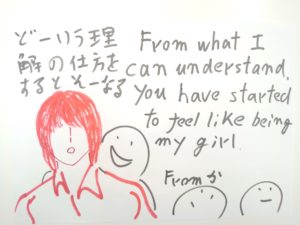 どーいう理
解の仕方を
するとそーなる
From what I
can understand,
you have started
to feel like being
my girl.
Fromか